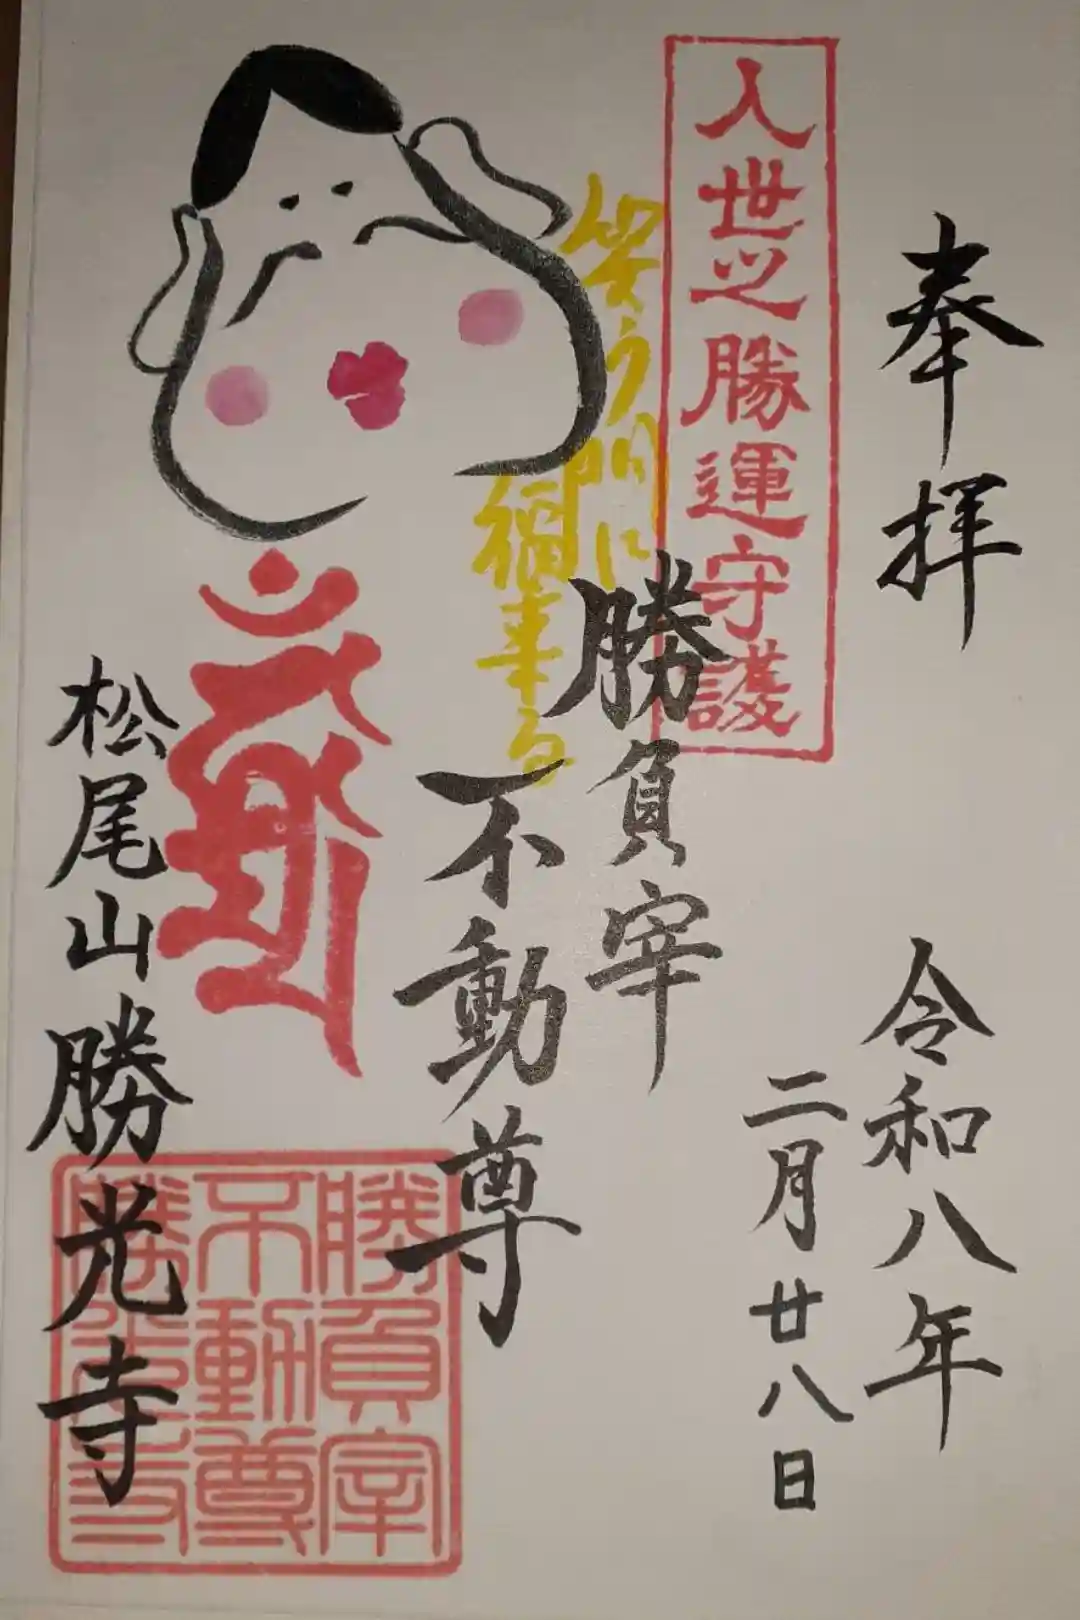 奉拝
令和八年
二月廿八日
入世之勝運守護
笑う門に
福来る
勝負宰
不動尊
松尾山勝光寺
勝負宰
不動尊
勝光寺